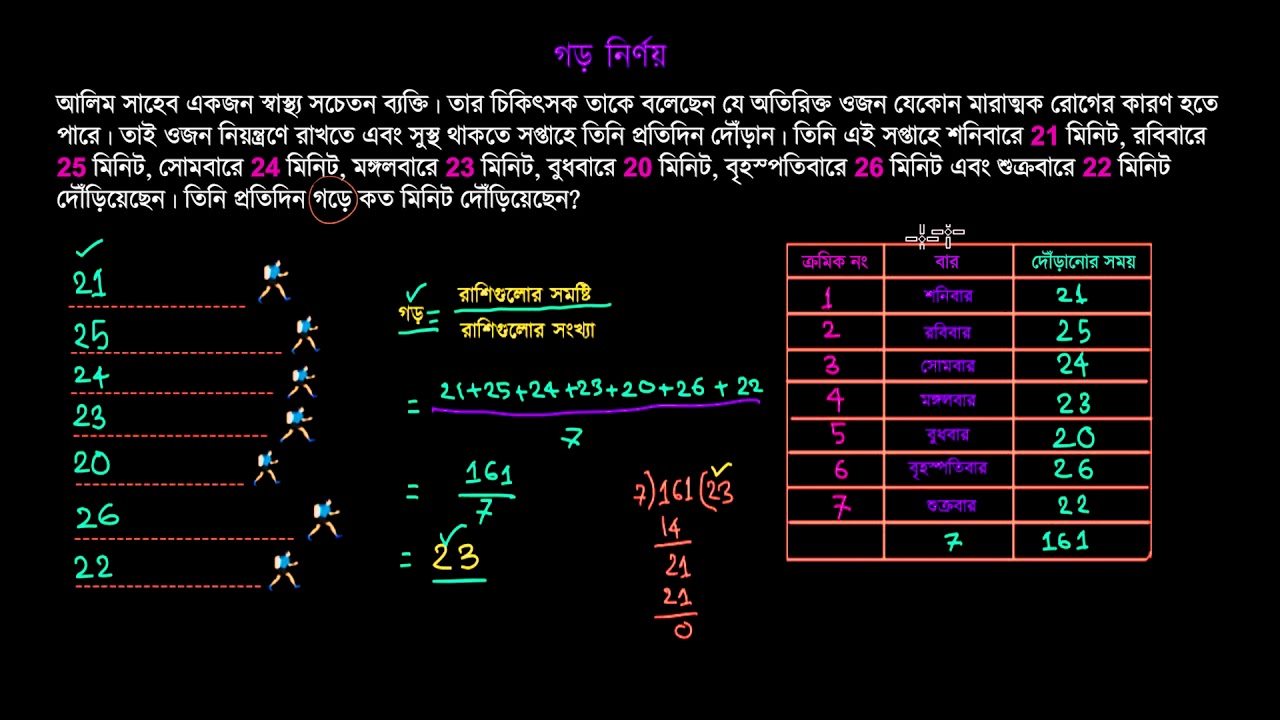 গড় নির্ণয়
আলিম সাহেব একজন স্বাস্থ্য সচেতন ব্যক্তি। তার চিকিৎসক তাকে বলেছেন যে অতিরিক্ত ওজন যেকোন মারাত্মক রোগের কারণ হতে
পারে। তাই ওজন নিয়ন্ত্রণে রাখতে এবং সুস্থ থাকতে সপ্তাহে তিনি প্রতিদিন দৌঁড়ান। তিনি এই সপ্তাহে শনিবারে 21 মিনিট, রবিবারে
25 মিনিট, সোমবারে 24 মিনিট, মঙ্গলবারে 23 মিনিট, বুধবারে 20 মিনিট, বৃহস্পতিবারে 26 মিনিট এবং শুক্রবারে 22 মিনিট
দৌঁড়িয়েছেন। তিনি প্রতিদিন গড়ে কত মিনিট দৌঁড়িয়েছেন?
21
25
24
23
20
26
22
গড় = রাশিগুলোর সমষ্টি
রাশিগুলোর সংখ্যা
= 21+25+24+23+20+26+22
7
= 161
7
= 23
7)161(23
14
21
21
0
ক্রমিক নং বার দৌঁড়ানোর সময়
1 শনিবার 21
2 রবিবার 25
3 সোমবার 24
4 মঙ্গলবার 23
5 বুধবার 20
6 বৃহস্পতিবার 26
7 শুক্রবার 22
7 161